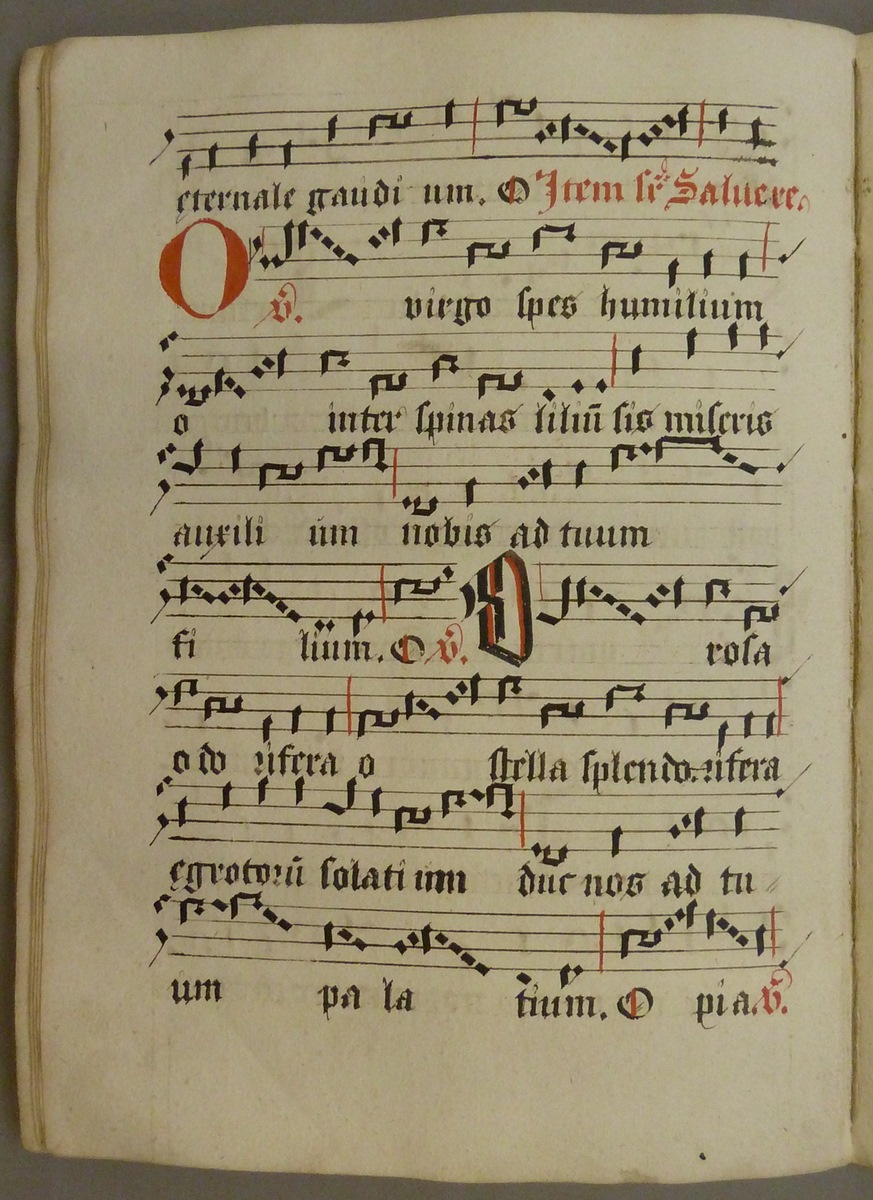 eternale gaudi um. O Item sr̃ Salue re.
O v̄. virgo spes humilium
o inter spinas liliū sis miseris
auxili um nobis ad tuum
fi lium. O v̄. O rosa
o do rifera o stella splendo rifera
egrotorū solati um duc nos ad tu
um pa la tium. O pia. v̄.